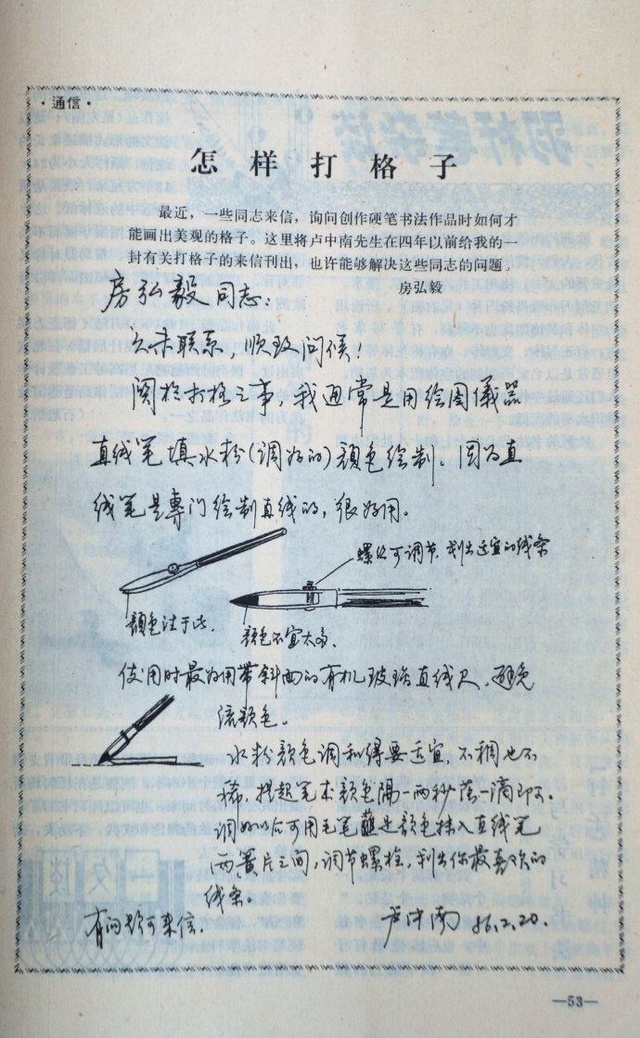 ·通信·
怎样打格子
最近，一些同志来信，询问创作硬笔书法作品时如何才
能画出美观的格子。这里将卢中南先生在四年以前给我的一
封有关打格子的来信刊出，也许能够解决这些同志的问题。
房弘毅
房弘毅同志：
久未联系，顺致问候！
関於打格之事，我通常是用绘图儀器
直线笔填水粉(调好的)颜色绘制。因为直
线笔是專门绘制直线的，很好用。
螺丝可调节，划出适宜的线条
颜色注于此.
颜色不宜太多.
使用时最好用带斜面的有机玻璃直线尺，避免
流颜色。
水粉颜色调和得要适宜，不稠也不
稀，提起笔来颜色隔一两秒落一滴即可.
调好以后可用毛笔蘸上颜色抹入直线笔
两簧片之间，调节螺栓，划出你最喜欢的
线条。
有问题可来信.
卢中南 86.2.20.
—53—